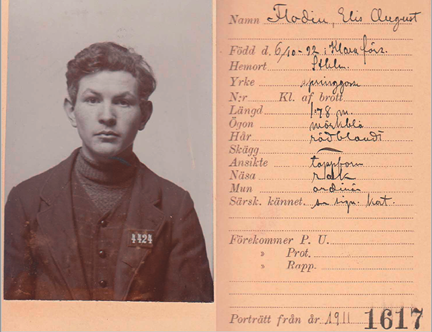 4424
Namn Flodin, Elis August
Född d. 6/10-92 i Klara förs.
Hemort Sthlm.
Yrke springgosse
N:r Kl. af brott
Längd 1.78 m.
Ögon mörkblå
Hår rödblandt
Skägg —
Ansikte
Näsa rak
Mun ordinär
Särsk. kännet. se sign. kort.
Förekommer P. U.
» Prot.
» Rapp.
Porträtt från år 1911 1617